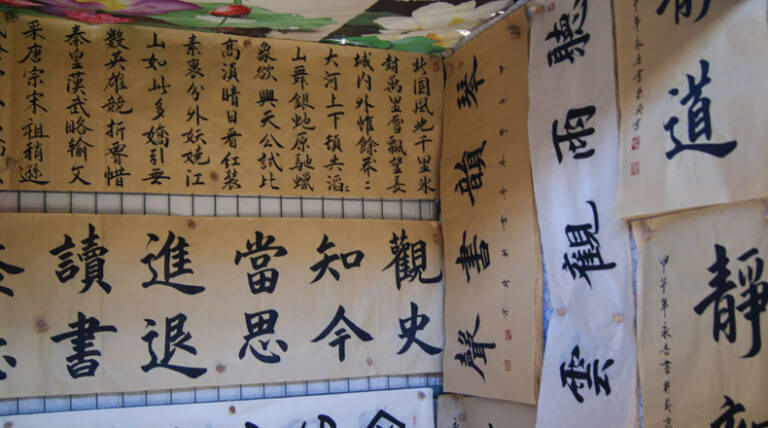 静道
靜
聽雨觀雲
琴韻書聲
北国風光千里氷
封萬里雪飄望長
城内外惟餘莽〻
大河上下頓失滔〻
山舞銀蛇原馳蠟
象欲與天公試比
高須晴日看紅裝
素裹分外妖娆江
山如此多嬌引無
數英雄競折腰惜
秦皇漢武略輸文
采唐宗宋祖稍遜
觀史
知今
當思
進退
讀書